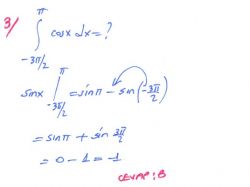 3/
∫ from -3π/2 to π cosx dx = ?
sinx | from -3π/2 to π = sinπ - sin(-3π/2)
= sinπ + sin 3π/2
= 0 - 1 = -1
CEVAP: B